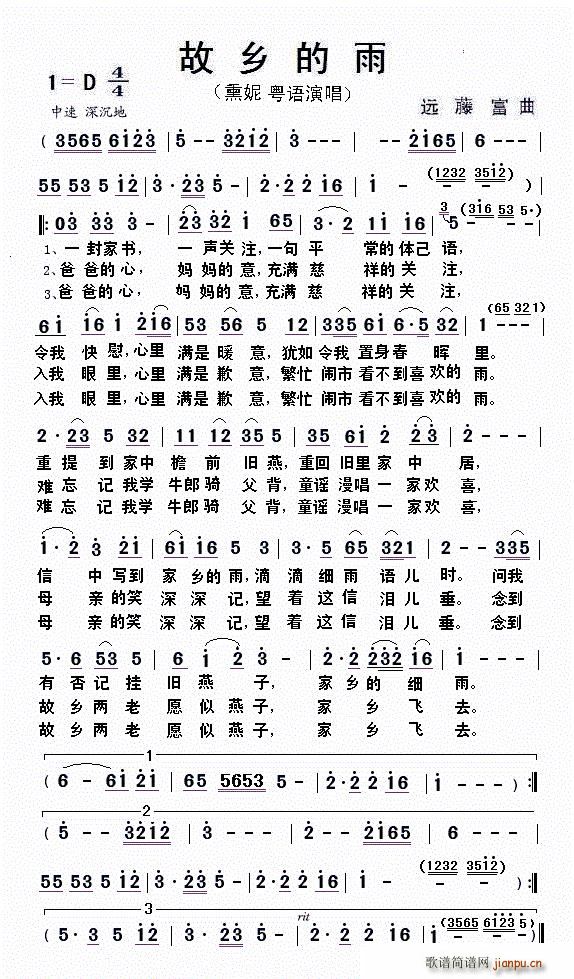 故乡的雨
1=D 4/4
(熏妮 粤语演唱)
中速 深沉地
远藤富曲
( 3565 6123 | 5 - - 3212 | 3 - - - | 2 - - 2165 | 6 - - - |
55 53 5 12 | 3 · 23 5 - | 2 · 2 2 16 | 1 - (1232 3512) |
||: 03 33 3 - | 23 32 1 65 | 3 · 2 11 16 | 3 5 - (316 53 5·) |
1、一封家书, 一声关注,一句平 常的体己语,
2、爸爸的心, 妈妈的意,充满慈 祥的关 注,
3、爸爸的心, 妈妈的意,充满慈 祥的关 注,
(65 321)
61 16 1 216 | 53 56 5 12 | 335 61 6·5 32 | 1 - - - |
令我 快慰,心里 满是暖 意,犹如令我 置身春 晖 里。
入我 眼里,心里 满是歉 意,繁忙 闹市 看不到喜 欢的 雨。
入我 眼里,心里 满是歉 意,繁忙 闹市 看不到喜 欢的 雨。
2 · 23 5 32 | 11 12 55 5 | 35 61 2 23 | 2 - - - |
重提 到 家中 檐 前 旧 燕,重回 旧里 家 中 居,
难忘 记 我学 牛郎 骑 父 背,童谣 漫唱 一 家欢 喜,
难忘 记 我学 牛郎 骑 父 背,童谣 漫唱 一 家欢 喜,
1 · 2 3 21 | 61 16 5 3 | 3 · 65 65 321 | 2 - - 335 |
信 中 写到 家 乡的 雨,滴 滴 细雨 语儿 时。问我
母 亲的笑 深深 记,望 着 这信 泪儿 垂。念到
母 亲的笑 深深 记,望 着 这信 泪儿 垂。念到
5 · 6 53 5 | 6 1 2 - | 2 · 2 232 16 | 1 - - - |
有 否记 挂 旧燕 子, 家 乡的 细 雨。
故 乡两 老 愿似燕子, 家 乡 飞 去。
故 乡两 老 愿似燕子, 家 乡 飞 去。
1
( 6 - 61 21 | 65 5653 5 - | 2 · 2 2 16 | 1 - - - ) :||
2
( 5 - - 3212 | 3 - - - | 2 - - 2165 | 6 - - - |
55 53 5 12 | 3 · 23 5 - | 2 · 2 2 16 | 1 - (1232 3512) :||
3
rit
( 5 · 3 23 5 | 2 · 2 2 16 | 1 - (3565 6123 | 5 - - - ) ||
歌谱简谱网
jianpu.cn